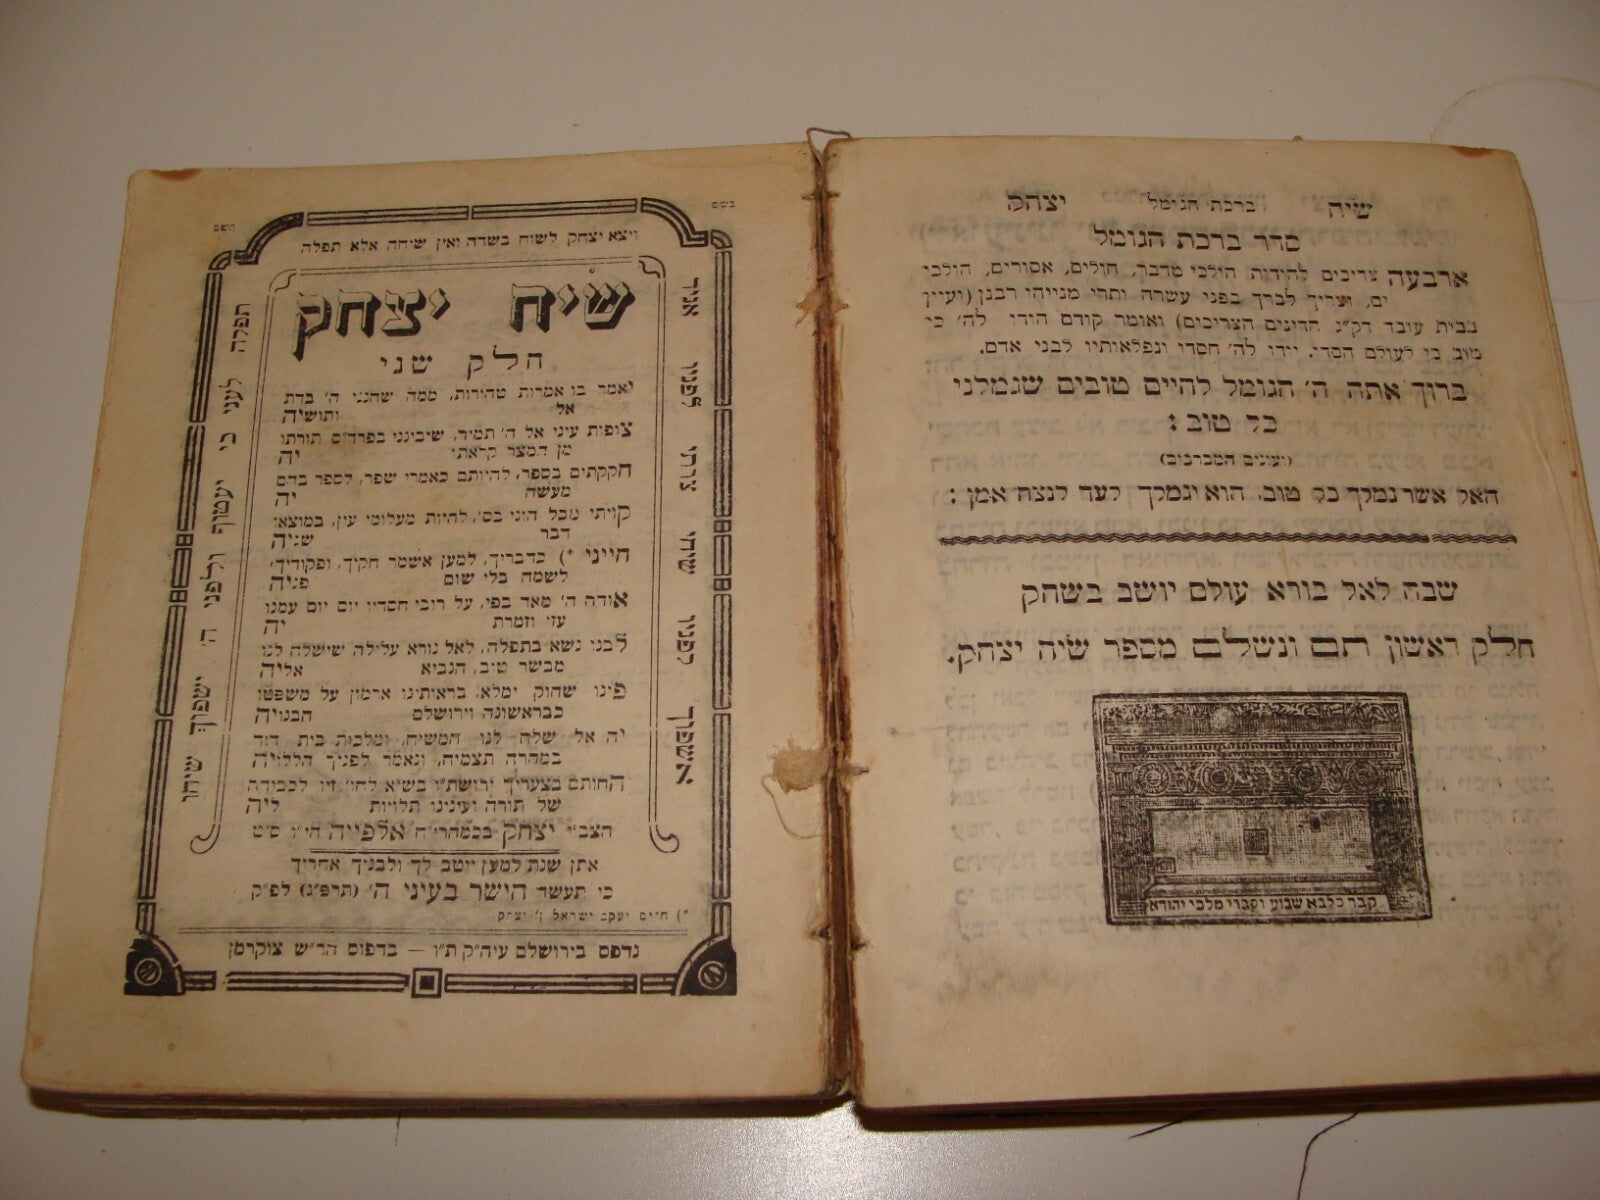 שיח ברכת הגומל יצחק
סדר ברכת הגומל
ארבעה צריכים להודות הולכי מדבר, חולים, אסורים, הולכי
ים, וצריך לברך בפני עשרה ותרי מנייהו רבנן (ועיין
בבית עובד דק״ג הדינים הצריכים) ואומר קודם הודו לה׳ כי
טוב כי לעולם חסדו. יודו לה׳ חסדו ונפלאותיו לבני אדם.
ברוך אתה ה׳ הגומל לחייבים טובות שגמלני
כל טוב :
(ועונים המברכים)
האל אשר גמלך כל טוב, הוא יגמלך לעד לנצח אמן :
שבח לאל בורא עולם יושב בשחק
חלק ראשון תם ונשלם מספר שיח יצחק.
קבר כלבא שבוע וקברי מלכי יהודא
בשם
השם
ויצא יצחק לשוח בשדה ואין שיחה אלא תפלה
אגיד לפניו צרתי שיחי לפניו אשפוך
תפלה לעני כי יעטוף ולפני ה׳ ישפוך שיחו
שיח יצחק
חלק שני
יאמר בו אמרות טהורות, ממה שחנני ה׳ בדת
אל ותושיה
צופות עיני אל ה׳ תמיד, שיבינני בפרד״ס תורתו
מן המצר קראתי יה
חקקתים בספר, להיותם כאמרי שפר, לספר בהם
מעשה יה
קויתי נוכל הוגי בס׳, להיות מעלומי עין, במוצאי
דבר שניה
חייני *) כדבריך, למען אשמר חקיך, ופקודיך,
לשמה בלי שום פניה
אודה ה׳ מאד בפי, על רובי חסדיו יום יום עמנו
עזי וזמרת יה
לבנו נשא בתפלה, לאל נורא עלילה שישלח לנו
מבשר טוב, הנביא אליה
פינו שחוק ימלא, בראותינו ארמון על משפטו
כבראשונה וירושלם הבנויה
יה אל שלח לנו המשיח, ומלכות בית דוד
במהרה תצמיח, ונאמר לפניך הללויה
החותם בצעריך ירושת״ו בש״א לחו׳ זיו לכבודה
של תורה ועינינו תלויות ליה
הצב״י יצחק בכמהרי״ח אלפייה הי״ו ס״ט
אתן שנת למען ייטב לך ולבניך אחריך
כי תעשה הישר בעיני ה׳ (תרפ״ג) לפ״ק
*) חיים יעקב ישראל ן׳ יצחק
נדפס בירושלם עיה״ק ת״ו — בדפוס הר״ש צוקרמן